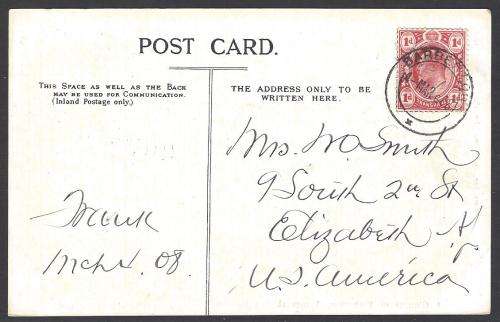 POST CARD.
THIS SPACE AS WELL AS THE BACK
MAY BE USED FOR COMMUNICATION.
(Inland Postage only.)
THE ADDRESS ONLY TO BE
WRITTEN HERE.
1d 1d
BARBERTON
1d 1d
TRANSVAAL
Mrs. W Smith
9 South 2nd St
Elizabeth
U.S. America
Frank
08.